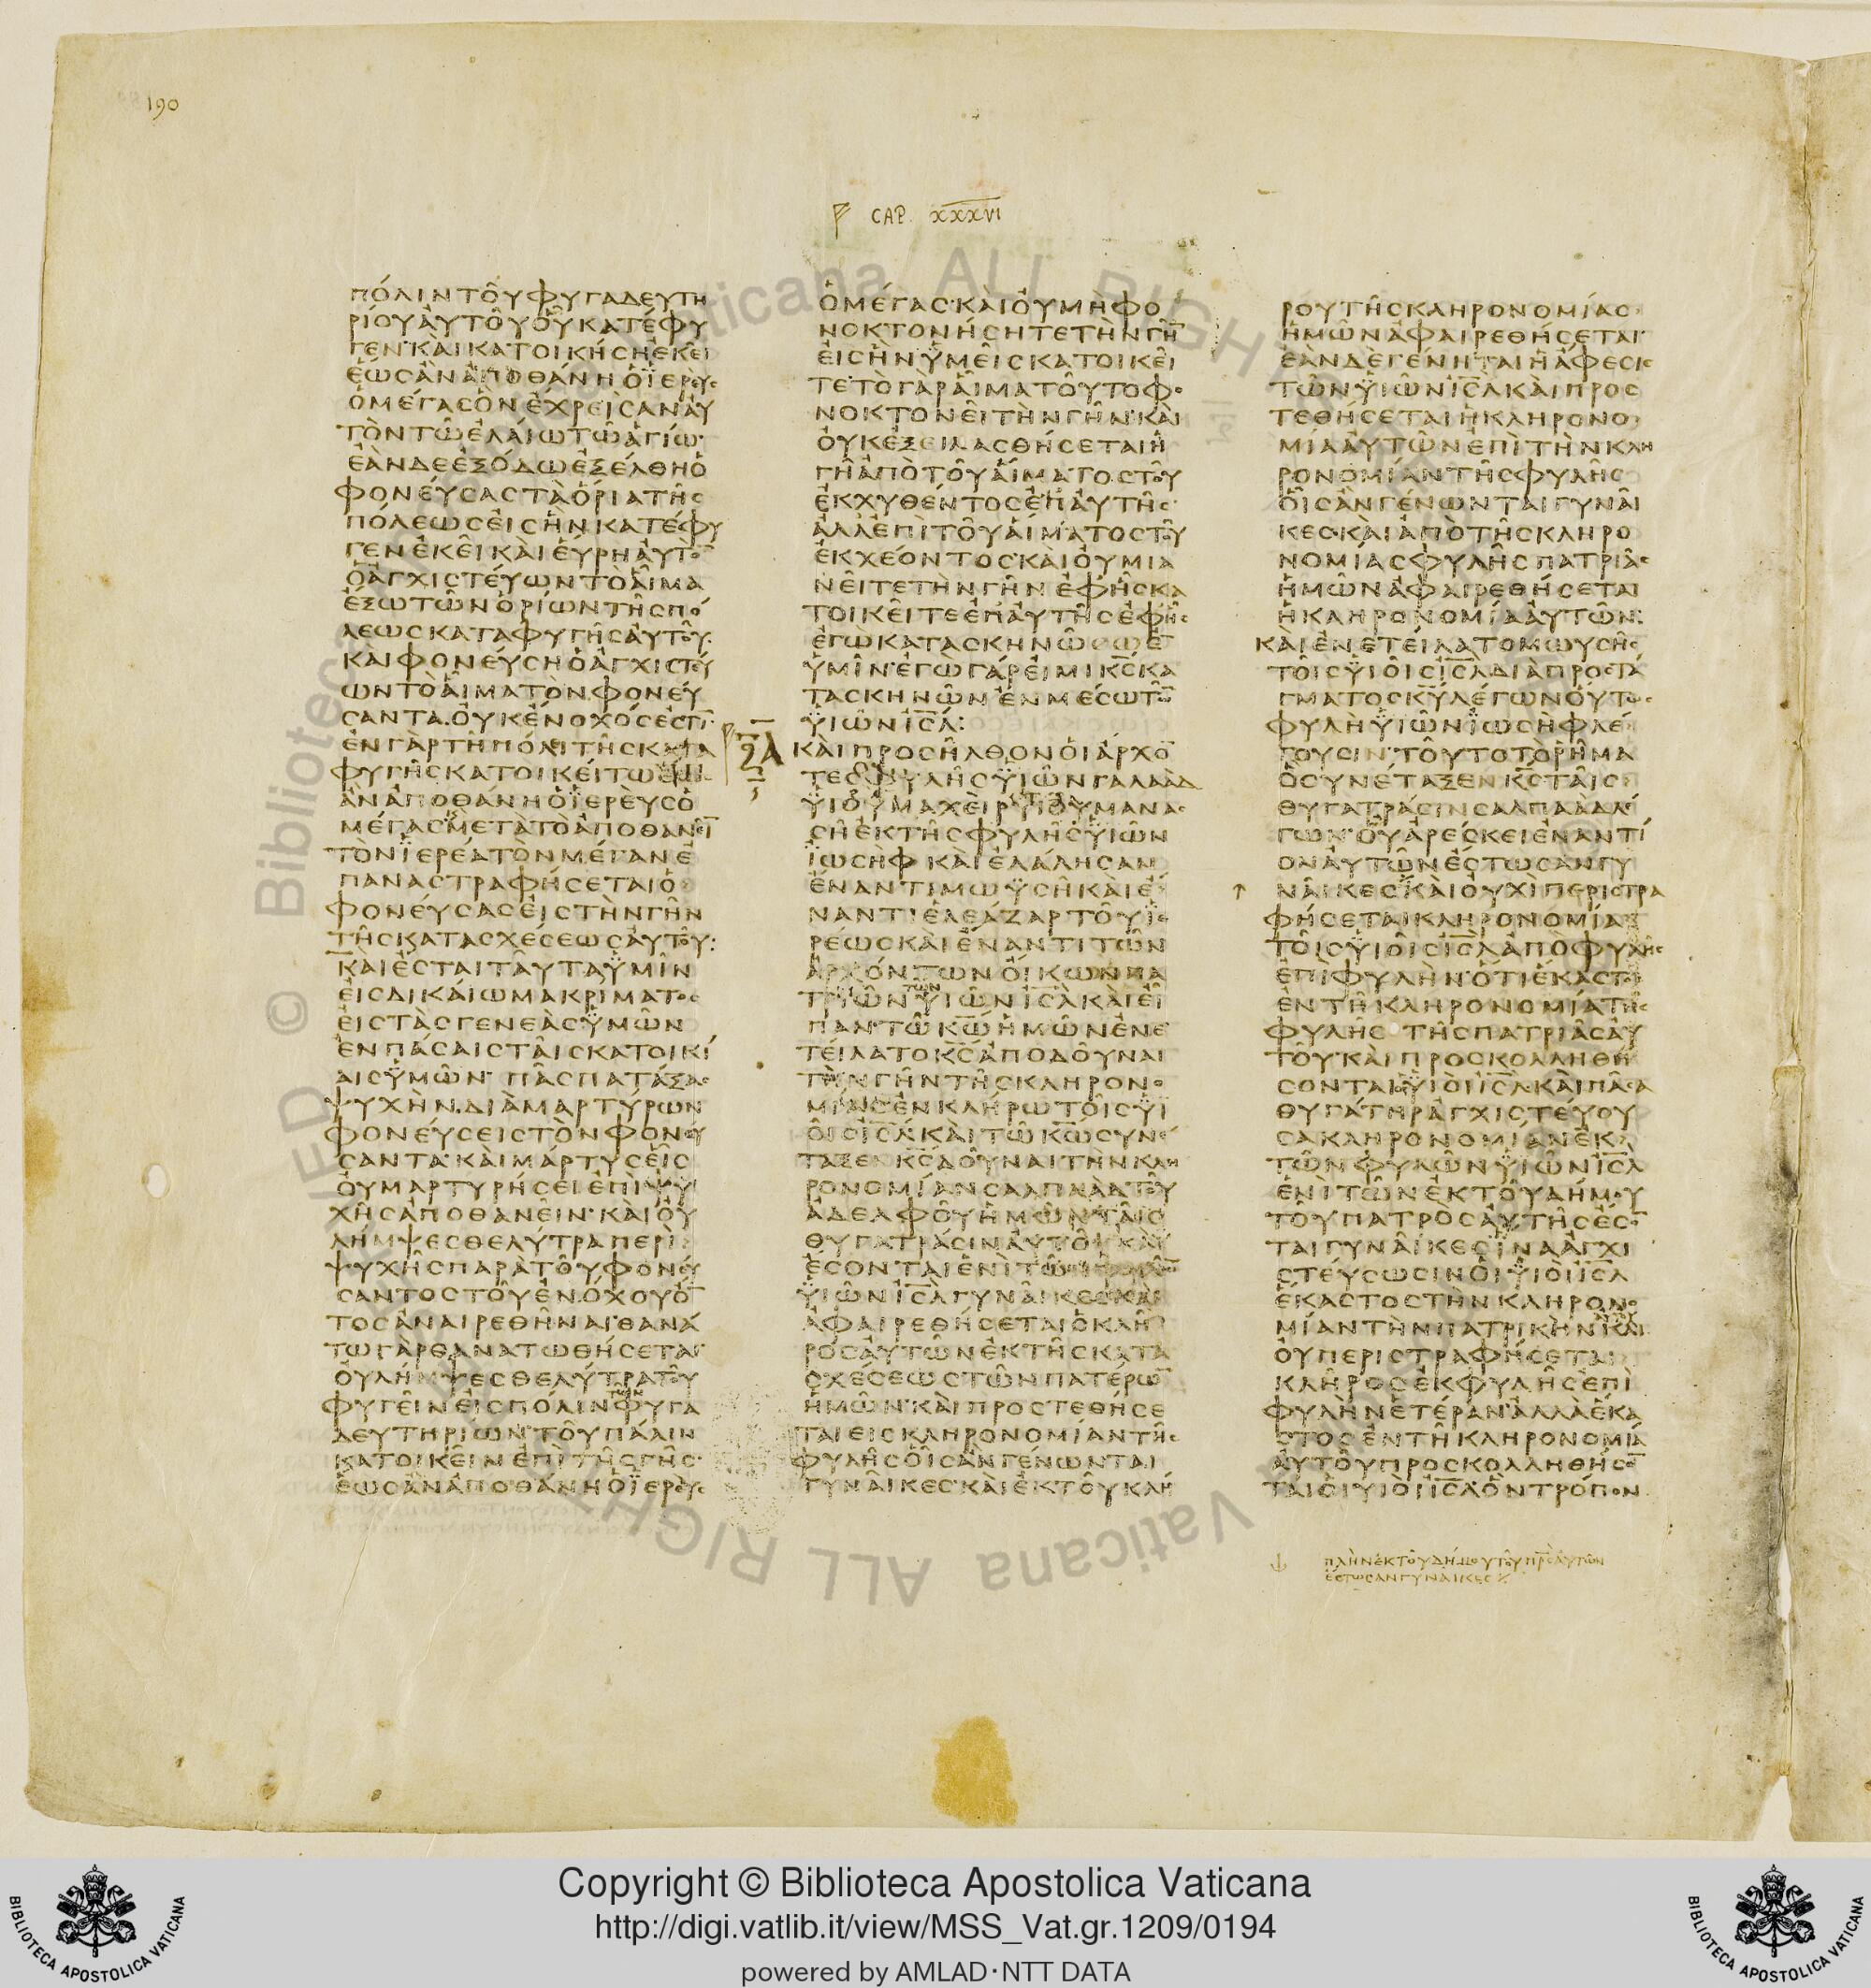 190
CAP. XXXVI
ΠΌΛΙΝΤΟΥ͂ΦΥΓΑΔΕΥΤΗ
ΡΊΟΥἈΥΤΟΥ͂ΟὟΚΑΤΈΦΥ
ΓΕΝ·ΚΑῚΚΑΤΟΙΚΉΣΗἘΚΕΙ͂
ἝΩΣἊΝἈΠΟΘΆΝΗὉἹΕΡΕῪΣ
ὉΜΈΓΑΣὋΝἜΧΡΕΙΣΑΝἈΥ
ΤῸΝΤΩ͂ἘΛΑΊΩΤΩ͂ἉΓΊΩ·
ἘᾺΝΔΕἘΞΌΔΩἘΞΈΛΘΗὉ
ΦΟΝΕΎΣΑΣΤᾺὍΡΙΑΤΗ͂Σ
ΠΌΛΕΩΣἘΙΣἫΝΚΑΤΈΦΥ
ΓΕΝἘΚΕΙ͂ΚΑῚἙΎΡΗἈΥΤῸ̅
ὉἈΓΧΙΣΤΕΎΩΝΤῸἈΙ͂ΜΑ
ἜΞΩΤΩ͂ΝὉΡΊΩΝΤΗ͂ΣΠΌ
ΛΕΩΣΚΑΤΑΦΥΓΗ͂ΣἈΥΤΟΥ͂·
ΚΑῚΦΟΝΕΎΣΗὉἈΓΧΙΣΤΕΎ
ΩΝΤῸἈΙ͂ΜΑΤῸΝΦΟΝΕΎ
ΣΑΝΤΑ·ὈΥΚἜΝΟΧΌΣἘΣΤΙ̅·
ἘΝΓᾺΡΤΗ͂ΠΌΛΕΙΤΗ͂ΣΚΑΤΑ
ΦΥΓΗ͂ΣΚΑΤΟΙΚΕΊΤΩ
ἊΝἈΠΟΘΆΝΗὉἹΕΡΕῪΣὉ
ΜΈΓΑΣ·ΜΕΤᾺΤῸἈΠΟΘΑΝΕΙ͂̅
ΤῸΝἹΕΡΈΑΤῸΝΜΈΓΑΝἘ
ΠΑΝΑΣΤΡΑΦΉΣΕΤΑΙὉ
ΦΟΝΕΎΣΑΣἘΙΣΤῊΝΓΗ͂Ν
ΤΗ͂ΣΚΑΤΑΣΧΈΣΕΩΣἈΥΤΟΥ͂:
ΚΑῚἜΣΤΑΙΤΑΥ͂ΤΑΫΜΙ͂Ν
ἘΙΣΔΙΚΑΊΩΜΑΚΡΊΜΑΤΟΣ
ἘΙΣΤᾺΣΓΕΝΕᾺΣΫΜΩ͂Ν
ἘΝΠΆΣΑΙΣΤΑΙ͂ΣΚΑΤΟΙΚΊ
ΑΙΣΫΜΩ͂Ν· ΠΑ͂ΣΠΑΤΆΞΑΣ
ΨΥΧῊΝ·ΔΙᾺΜΑΡΤΎΡΩΝ
ΦΟΝΕΎΣΕΙΣΤῸΝΦΟΝΕΎ
ΣΑΝΤΑ·ΚΑῚΜΆΡΤΥΣἙΙ͂Σ
ὈΥΜΑΡΤΥΡΉΣΕΙἘΠῚΨΥ
ΧΗ͂ΣἈΠΟΘΑΝΕΙΝ·ΚΑῚὈΥ
ΛΉΜΨΕΣΘΕΛΎΤΡΑΠΕΡῚ
ΨΥΧΗ͂ΣΠΑΡᾺΤΟΥ͂ΦΟΝΕΎ
ΣΑΝΤΟΣΤΟΥ͂ἘΝΌΧΟΥὌ̅
ΤΟΣἈΝΑΙΡΕΘΗ͂ΝΑΙ·ΘΑΝΆ
ΤΩΓᾺΡΘΑΝΑΤΩΘΉΣΕΤΑΙ·
ὈΥΛΉΜΨΕΣΘΕΛΎΤΡΑΤΟΥ͂
ΦΥΓΕΙ͂ΝἘΙΣΠΌΛΙΝΤΩΝΦΥΓΑ
ΔΕΥΤΗΡΊΩΝ·ΤΟΥ͂ΠΆΛΙΝ
ΚΑΤΟΙΚΕΙ͂ΝἘΠῚΤΗ͂ΣΓΗ͂Σ·
ἝΩΣἊΝἈΠΟΘΆΝΗὉἹΕΡΕῪΣ
ὉΜΈΓΑΣ·ΚΑῚὈΥΜῊΦΟ
ΝΟΚΤΟΝΉΣΗΤΕΤῊΝΓΗ̅
ἘΙΣἫΝΫΜΕΙ͂ΣΚΑΤΟΙΚΕΙ͂
ΤΕ·ΤῸΓᾺΡἈΙ͂ΜΑΤΟΥ͂ΤΟΦΟ
ΝΟΚΤΟΝΕΙ͂ΤῊΝΓΗ͂Ν·ΚΑῚ
ὈΥΚἘΞΕΙΛΑΣΘΉΣΕΤΑΙἩ
ΓΗ͂ἈΠῸΤΟΥ͂ἍΙΜΑΤΟΣΤΟΥ͂
ἘΚΧΥΘΈΝΤΟΣἘΠἈΥΤΗ͂Σ·
ἈΛΛἘΠῚΤΟΥ͂ἍΙΜΑΤΟΣΤΟΥ͂
ἘΚΧΈΟΝΤΟΣ·ΚΑῚὈΥΜΙΑ
ΝΕΙ͂ΤΕΤῊΝΓΗ͂ΝἘΦΗ͂ΣΚΑ
ΤΟΙΚΕΙ͂ΤΕἘΠἈΥΤΗ͂ΣἘΦΗ͂Σ
ἘΓῺΚΑΤΑΣΚΗΝΩ͂
ΫΜΙ͂Ν·ἘΓῺΓΆΡἘΙΜΙΚ̅Σ̅ΚΑ
ΤΑΣΚΗΝΩ͂ΝἘΝΜΈΣΩΤΩ̅
ΫΙΩ͂ΝΙ̅Σ̅Λ̅:
ΚΑῚΠΡΟΣΗ͂ΛΘΟΝὉΙἌΡΧΟ̅
ΤΕΣΦΥΛΗ͂ΣΫΙΩ͂ΝΓΑΛΑᾺΔ
ΫΙΟΥ͂ΜΑΧῈΙΡΥἹΟΥ͂ΜΑΝΑΣ
ΣΗ͂ἘΚΤΗ͂ΣΦΥΛΗ͂ΣΫΙΩ͂Ν
ΪΩΣῊΦ ΚΑῚἘΛΆΛΗΣΑΝ
ἜΝΑΝΤΙΜΩΫΣΗ͂ΚΑῚἜ
ΝΑΝΤΙἘΛΕΆΖΑΡΤΟΥ͂ἹΕ
ΡΈΩΣΚΑῚἜΝΑΝΤΙΤΩ͂Ν
ἈΡΧΌΝΤΩΝὌΙΚΩΝΠΑ
ΤΡΙΩ͂ΝΤΩΝΫΙΩ͂ΝΙ̅Σ̅Λ̅ΚΑῚἘΙ͂
ΠΑΝ·ΤΩ͂Κ̅Ω̅ἩΜΩ͂ΝἘΝΕ
ΤΕΊΛΑΤΟΚ̅Σ̅ἈΠΟΔΟΥ͂ΝΑΙ
ΤῊΝΓΗ͂ΝΤΗ͂ΣΚΛΗΡΟΝΟ
ΜΊΑΣἘΝΚΛΉΡΩΤΟΙ͂ΣΫΙ
ΟΙ͂ΣΙ̅Σ̅Λ̅·ΚΑῚΤΩ͂Κ̅Ω̅ΣΥΝΈ
ΤΑΞΕΝΚ̅Σ̅ΔΟΥ͂ΝΑΙΤῊΝΚΛΗ
ΡΟΝΟΜΊΑΝΣΑΛΠΑᾺΔΤΟΥ͂
ἈΔΕΛΦΟΥ͂ἩΜΩ͂ΝΤΑΙ͂Σ
ΘΥΓΑΤΡΆΣΙΝἈΥΤΟΥ͂·ΚΑῚ
ἜΣΟΝΤΑΙἙΝῚΤΩ͂Ν
ΫΙΩ͂ΝΙ̅Σ̅Λ̅ΓΥΝΑΙ͂ΚΕΣΚΑῚ
ἈΦΑΙΡΕΘΉΣΕΤΑΙὉΚΛΗ͂
ΡΟΣἈΥΤΩ͂ΝἘΚΤΗ͂ΣΚΑΤΑ
ΣΧΈΣΕΩΣΤΩ͂ΝΠΑΤΈΡΩ̅
ἩΜΩ͂Ν·ΚΑῚΠΡΟΣΤΕΘΉΣΕ
ΤΑΙΕΙΣΚΛΗΡΟΝΟΜΊΑΝΤΗ͂Σ
ΦΥΛΗ͂ΣὉΙ͂ΣἊΝΓΈΝΩΝΤΑΙ
ΓΥΝΑΙ͂ΚΕΣ·ΚΑῚἘΚΤΟΥ͂ΚΛΉ
ΡΟΥΤΗ͂ΣΚΛΗΡΟΝΟΜΊΑΣ
ἩΜΩ͂ΝἈΦΑΙΡΕΘΉΣΕΤΑΙ·
ἘᾺΝΔῈΓΈΝΗΤΑΙἩἌΦΕΣΙΣ
ΤΩ͂ΝΫΙΩ͂ΝΙ̅Σ̅Λ̅ΚΑῚΠΡΟΣ
ΤΕΘΉΣΕΤΑΙἩΚΛΗΡΟΝΟ
ΜΊΑἈΥΤΩ͂ΝἘΠῚΤῊΝΚΛΗ
ΡΟΝΟΜΊΑΝΤΗ͂ΣΦΥΛΗ͂Σ
ὉΙ͂ΣἊΝΓΈΝΩΝΤΑΙΓΥΝΑΙ͂
ΚΕΣ·ΚΑῚἈΠῸΤΗ͂ΣΚΛΗΡΟ
ΝΟΜΊΑΣΦΥΛΗ͂ΣΠΑΤΡΙΑ͂Σ
ἩΜΩ͂ΝἈΦΑΙΡΕΘΉΣΕΤΑΙ
ἩΚΛΗΡΟΝΟΜΊΑἈΥΤΩ͂Ν:
ΚΑῚἘΝΕΤΕΊΛΑΤΟΜΩΥΣΗ͂Σ
ΤΟΙ͂ΣΫΙΟΙ͂ΣΙ̅Σ̅Λ̅ΔΙᾺΠΡΟΣΤΆ
ΓΜΑΤΟΣΚ̅Υ̅ΛΈΓΩΝὍΥΤΩΣ
ΦΥΛῊΫΙΩ͂ΝΪΩΣῊΦΛΈ
ΓΟΥΣΙΝ·ΤΟΥ͂ΤΟΤῸΡΗ͂ΜΑ
ὋΣΥΝΈΤΑΞΕΝΚ̅Σ̅ΤΑΙ͂Σ
ΘΥΓΑΤΡΆΣΙΝΣΑΛΠΑᾺΔΛΈ
ΓΩΝ·ΟὟἈΡΈΣΚΕΙἘΝΑΝΤΊ
ΟΝἈΥΤΩ͂ΝἜΣΤΩΣΑΝΓΥ
ΝΑΙ͂ΚΕΣ·ΚΑῚὈΥΧῚΠΕΡΙΣΤΡΑ
ΦΉΣΕΤΑΙΚΛΗΡΟΝΟΜΊΑ
ΤΟΙ͂ΣΫΙΟΙ͂ΣΙ̅Σ̅Λ̅ἈΠῸΦΥΛΗ͂Σ
ἘΠῚΦΥΛῊΝ·ὍΤΙἝΚΑΣΤΟΣ
ἘΝΤΗ͂ΚΛΗΡΟΝΟΜΊΑΤΗ͂Σ
ΦΥΛΗ͂Σ ΤΗ͂ΣΠΑΤΡΙΑ͂ΣἈΥ
ΤΟΥ͂·ΚΑῚΠΡΟΣΚΟΛΛΗΘΉ
ΣΟΝΤΑΙὉΙΫΙΟῚΙ̅Σ̅Λ̅·ΚΑῚΠΑ͂ΣΑ
ΘΥΓΆΤΗΡἈΓΧΙΣΤΕΎΟΥ
ΣΑΚΛΗΡΟΝΟΜΊΑΝἘΚ
ΤΩ͂ΝΦΥΛΩ͂ΝΫΙΩ͂ΝΙ̅Σ̅Λ̅
ἙΝῚΤΩ͂ΝἘΚΤΟΥ͂ΔΉΜΟΥ
ΤΟΥ͂ΠΑΤΡῸΣἈΥΤΗ͂ΣἜΣΟ̅
ΤΑΙΓΥΝΑΙ͂ΚΕΣἽΝΑἈΓΧΙ
ΣΤΕΎΣΩΣΙΝὉΙΫΙΟῚΙ̅Σ̅Λ̅
ἝΚΑΣΤΟΣΤῊΝΚΛΗΡΟΝΟ
ΜΊΑΝΤῊΝΠΑΤΡΙΚῊΝΚΑῚ
ὈΥΠΕΡΙΣΤΡΑΦΉΣΕΤΑΙ
ΚΛΗ͂ΡΟΣἘΚΦΥΛΗ͂ΣἘΠῚ
ΦΥΛῊΝἙΤΈΡΑΝ·ἈΛΛᾺἝΚΑ
ΣΤΟΣἘΝΤΗ͂ΚΛΗΡΟΝΟΜΊΑ
ἈΥΤΟΥ͂ΠΡΟΣΚΟΛΛΗΘΉΣΟ̅
ΤΑΙὉΙΥἹΟῚΙ̅Σ̅Λ̅ὋΝΤΡΌΠΟΝ
ΠΛῊΝἘΚΤΟΥ͂ΔΉΜΟΥΤΟΥ͂Π̅Ρ̅Σ̅ἈΥΤΩ͂Ν
ἜΣΤΩΣΑΝΓΥΝΑΙ͂ΚΕΣ
© Biblioteca Vaticana ALL RIGHTS RESERVED
Copyright © Biblioteca Apostolica Vaticana
http://digi.vatlib.it/view/MSS_Vat.gr.1209/0194
powered by AMLAD·NTT DATA
BIBLIOTECA APOSTOLICA VATICANA
BIBLIOTECA APOSTOLICA VATICANA